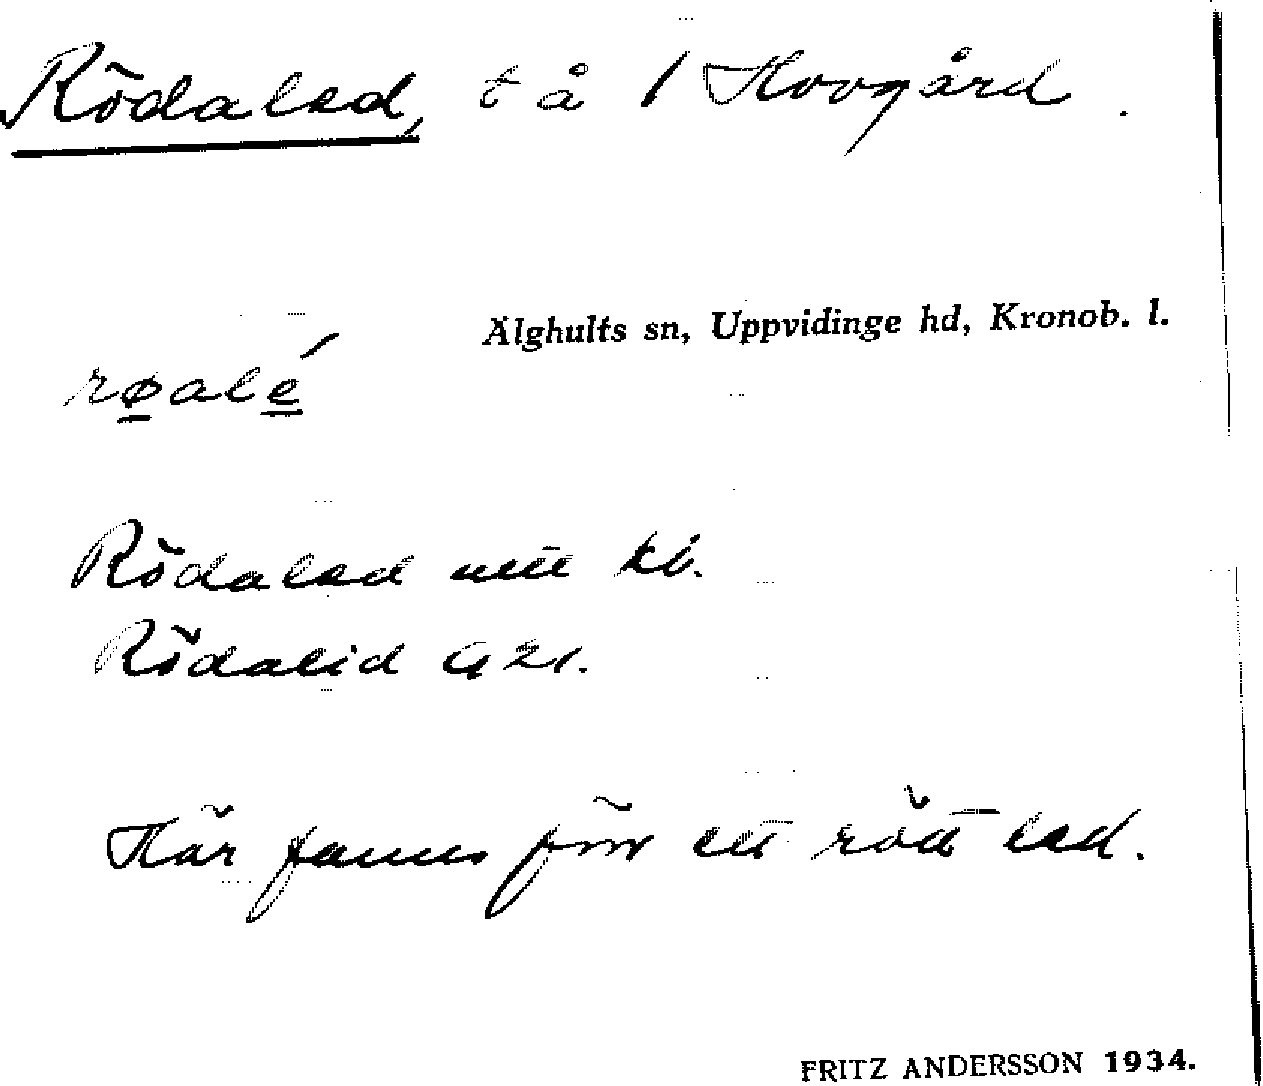 Rödaled, t å 1 Hovgård.
Älghults sn, Uppvidinge hd, Kronob. l.
røalé
Rödaled utt kb.
Rödalid GEK 21.
Här fanns förr ett rött led.
FRITZ ANDERSSON 1934.